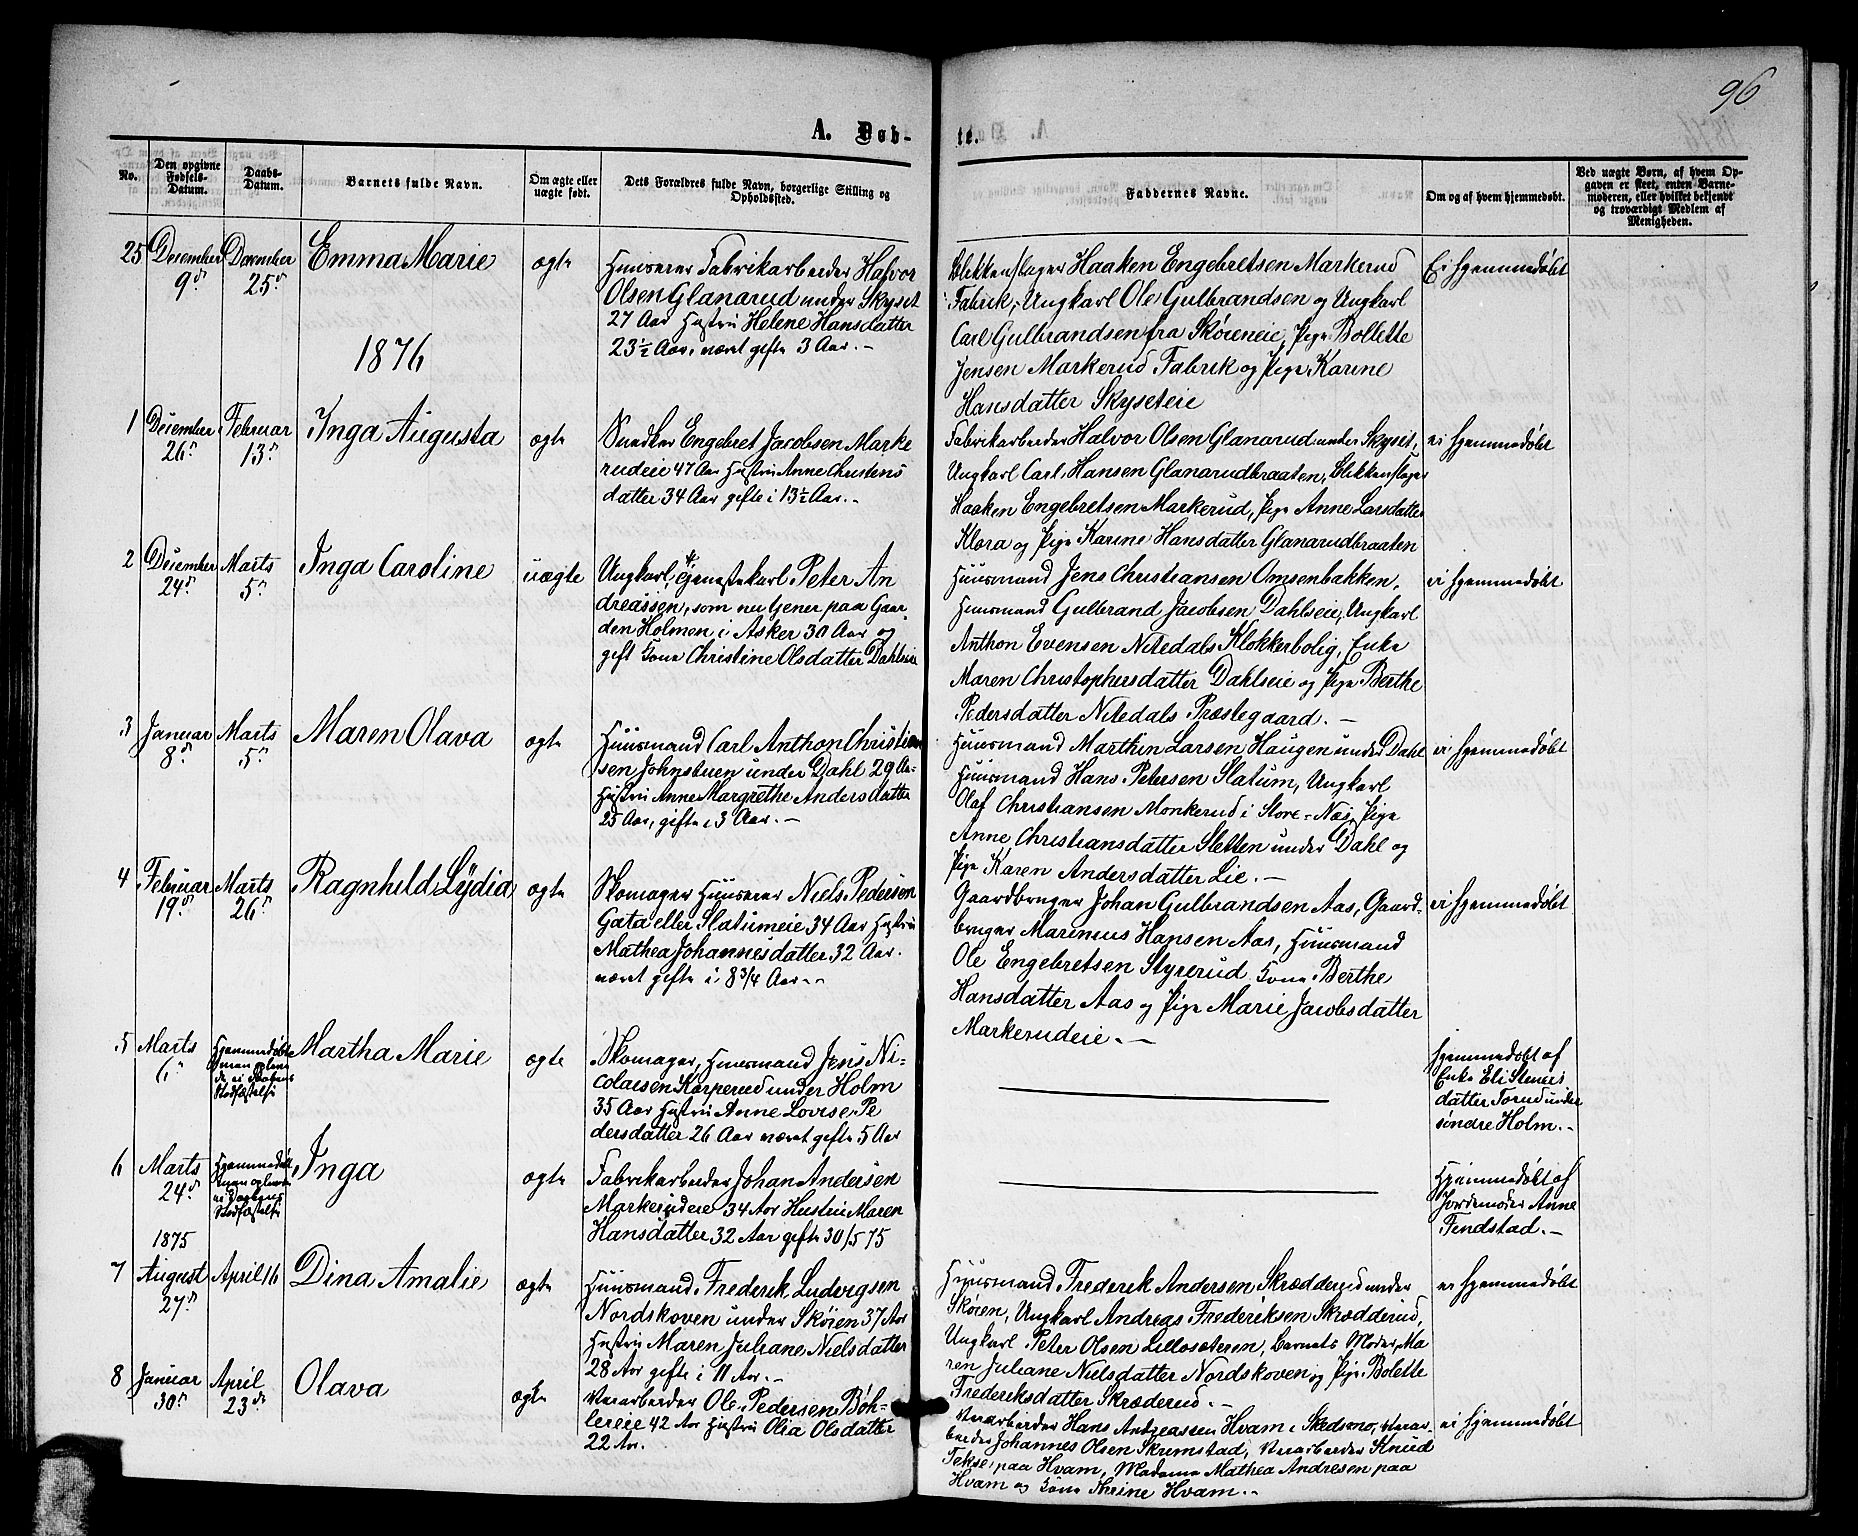 96
A. Døb-
te.
No.
Den opgivne Fødsels-Datum.
Daabs-Datum.
Barnets fulde Navn.
Om ægte eller uægte født.
Dets Forældres fulde Navn, borgerlige Stilling og Opholdssted.
Faddernes Navne.
Om og af hvem hjemmedøbt.
Ved uægte Børn, af hvem Opgaven er skeet, enten Barnemoderen, eller hvilket bekjendt og troværdigt Medlem af Menigheden.
25
December 9de
December 25de
Emma Marie
ægte
Huuseier Fabrikarbeider Halvor
Olsen Glanarud under Skyset
27 Aar Hustru Helene Hansdatter
23½ Aar, været gifte 3 Aar.-
Blikkenslager Haaken Engebretsen Markerud
Fabrik, Ungkarl Ole Gulbrandsen og Ungkarl
Carl Gulbrandsen fra Skøieneie, Pige Bollette
Jensen Markerud Fabrik og Pige Karine
Hansdatter Skyseteie
Ei hjemmedøbt
1876
1
December 26de
Februar 13de
Inga Augusta
ægte
Snedker Engebret Jacobsen Marke
rudeie 47 Aar Hustru Anne Christens
datter 34 Aar gifte i 13½ Aar.-
Fabrikarbeider Halvor Olsen Glanarud under Skyset,
Ungkarl Carl Hansen Glanarudbraaten, Blikkenslager
Haaken Engebretsen Markerud, Pige Anne Larsdatter
Klora og Pige Karine Hansdatter Glanarudbraaten
ei hjemmedøbt
2
December 24de
Marts 5de
Inga Caroline
uægte
Ungkarl, tjenestekarl Peter An
dreassen, som nu tjener paa Gaar
den Holmen i Asker 30 Aar og
gift Kone Christine Olsdatter Dahlseie
Huusmand Jens Christiansen Omsenbakken,
Huusmand Gulbrand Jacobsen Dahlseie, Ungkarl
Anthon Evensen Nitedals Klokkerbolig, Enke
Maren Christophersdatter Dahlseie og Pige Berthe
Pedersdatter Nitedals Præstegaard.-
ei hjemmedøbt
3
Januar 8de
Marts 5de
Maren Olava
ægte
Huusmand Carl Anthon Christian
sen Johnstuen under Dahl 29 Aar
Hustru Anne Margrethe Andersdatter
25 Aar, gifte i 3 Aar.-
Huusmand Marthin Larsen Haugen under Dahl
Huusmand Hans Petersen Slatum, Ungkarl
Olaf Christiansen Monkerud i Store-Næs, Pige
Anne Christiansdatter Sletten under Dahl og
Pige Karen Andersdatter Lie.-
ei hjemmedøbt
4
Februar 19de
Marts 26de
Ragnhild Lydia
ægte
Skomager Huuseier Niels Pedersen
Gata eller Slatumeie 34 Aar Hustru
Mathea Johannesdatter 32 Aar.
været gifte i 8¾ Aar.-
Gaardbruger Johan Gulbrandsen Aas, Gaard-
bruger Marenius Hansen Aas, Huusmand
Ole Engebretsen Styrerud Kone Berthe
Hansdatter Aas og Pige Marie Jacobsdatter
Markerudeie.-
ei hjemmedøbt
5
Marts 6te
Hjemmedøbt
Martha Marie
ægte
Skomager, Huusmand Jens Ni-
colaisen Karperud under Holm
35 Aar Hustru Anne Lovise Pe
dersdatter 26 Aar været gifte 5 Aar
Hjemmedøbt af
Enke Eli Steners
datter Torud under
søndre Holm.-
6
Marts 24de
Hjemmedøbt
Inga
ægte
Fabrikarbeider Johan Andersen
Markerudeie 34 Aar Hustru Maren
Hansdatter 32 Aar gifte 30/5 75
Hjemmedøbt af
Jordemoder Anne
Tendstad.-
7
1875
August 27de
April 16
Dina Amalie
ægte
Huusmand Frederik Ludvigsen
Nordskoven under Skøien 37 Aar
Hustru Maren Juliane Nielsdatter
28 Aar gifte i 11 Aar.-
Huusmand Frederik Andersen Skrædderud under
Skøien, Ungkarl Andreas Frederiksen Skrædderud,
Ungkarl Peter Olsen Lillosæteren, Barnets Moder Ma
ren Juliane Nielsdatter Nordskoven og Pige Bolette
Frederiksdatter Skræderud.-
ei hjemmedøbt
8
Januar 30de
April 23de
Olava
ægte
Veiarbeider Ole Pedersen Bøh-
lereie 42 Aar Hustru Olia Olsdatter
22 Aar.
Veiarbeider Hans Andreassen Hvam i Skedsmo, Veiar-
beider Johannes Olsen Skrimstad, Veiarbeider Knud
Tekse paa Hvam, Madame Mathea Andresen paa
Hvam og Kone Thrine Hvam.-
ei hjemmedøbt